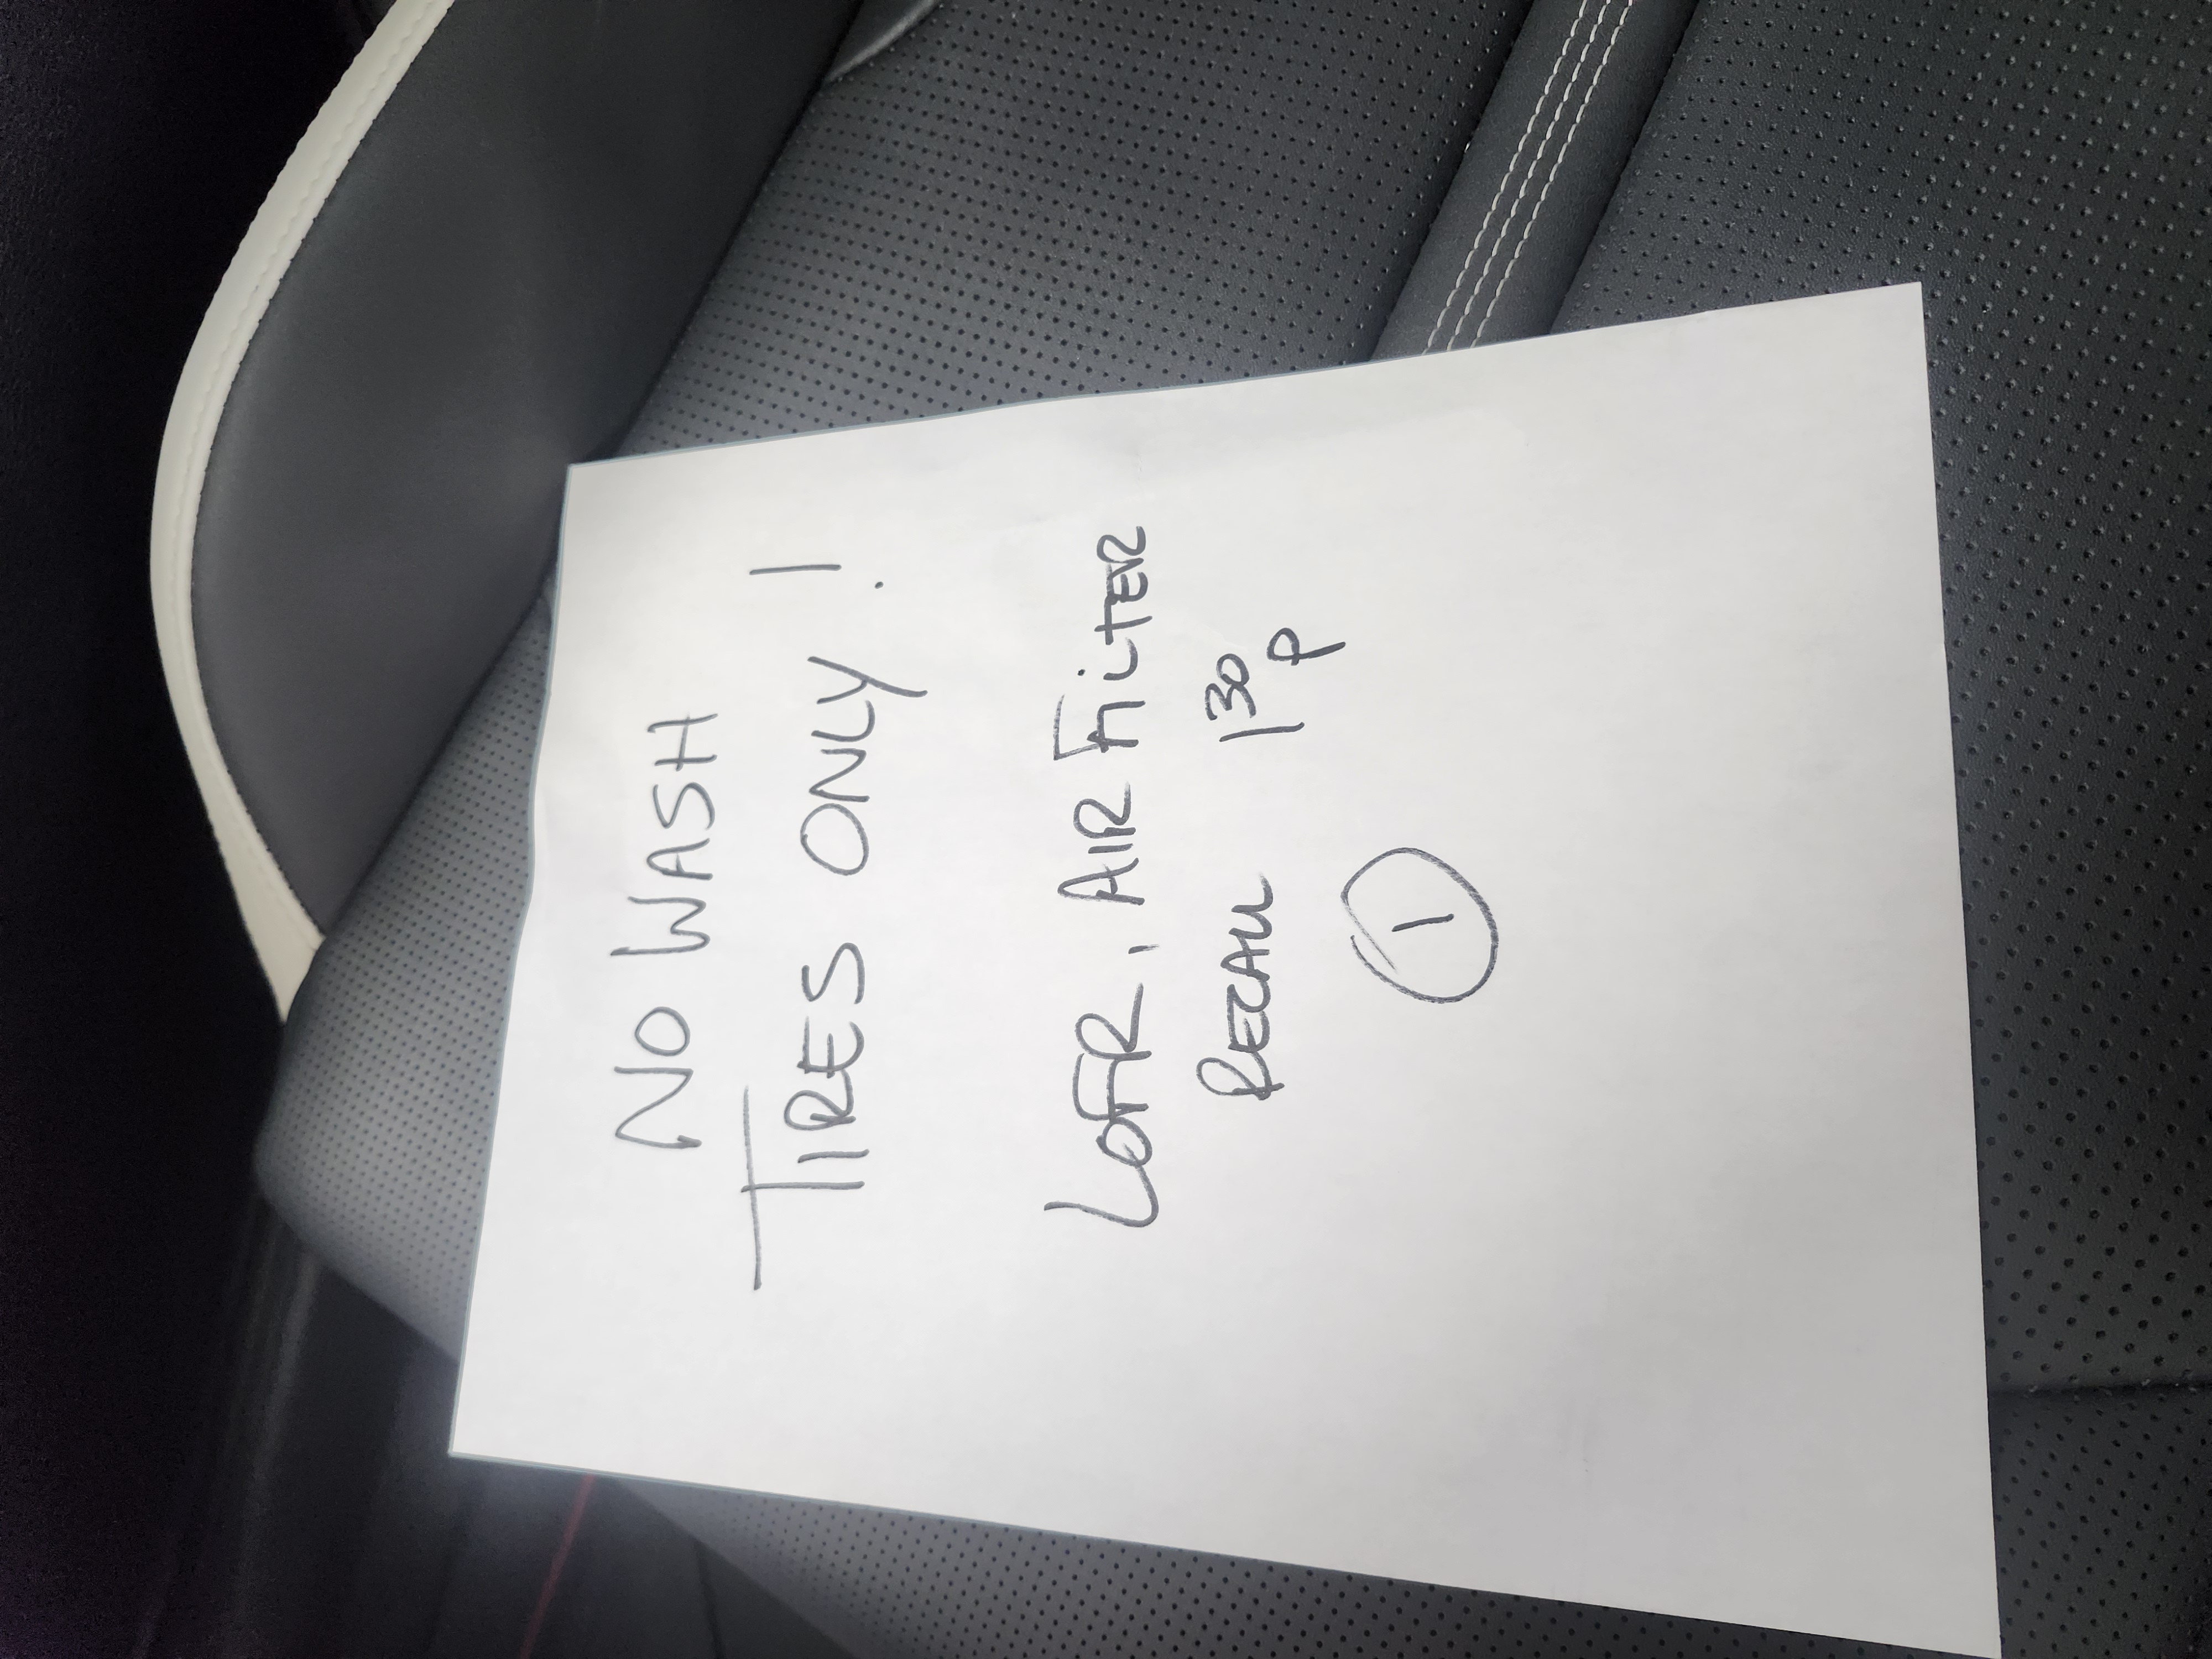 NO WASH
TIRES ONLY!
LOFR, AIR FILTER
RECALL 1 30 P
1